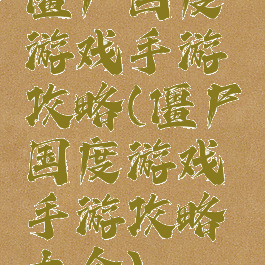 僵尸国度
游戏手游
攻略(僵尸
国度游戏
手游攻略
大全)